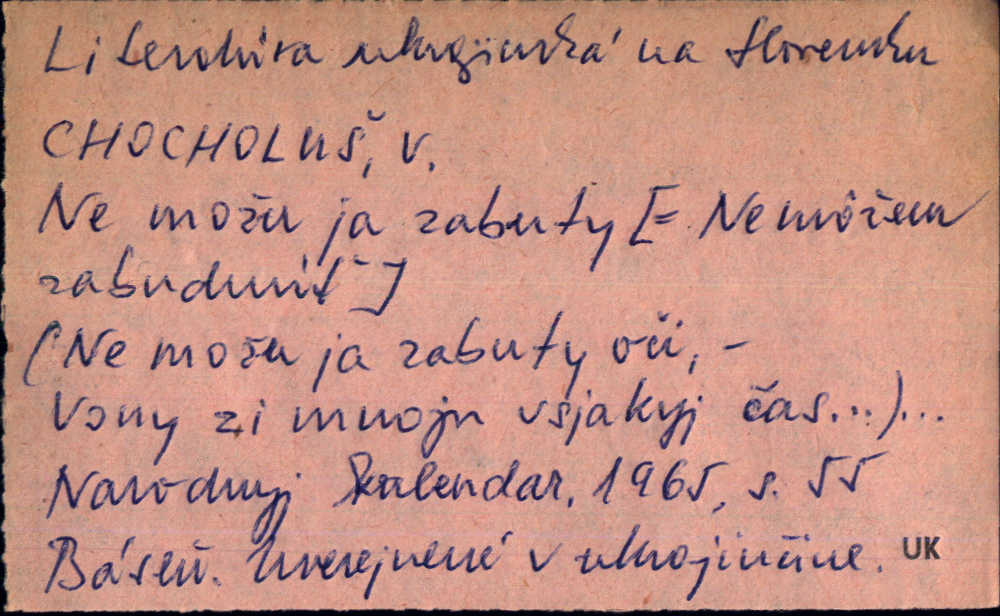 Literatúra ukrajinská na Slovensku
CHOCHOLUŠ, V.
Ne možu ja zabuty [= Nemôžem
zabudnúť]
(Ne možu ja zabuty oči, -
Vony zi mnoju vsjakyj čas...)...
Narodnyj kalendar, 1965, s. 55
Báseň. Uverejnené v ukrajinčine. UK